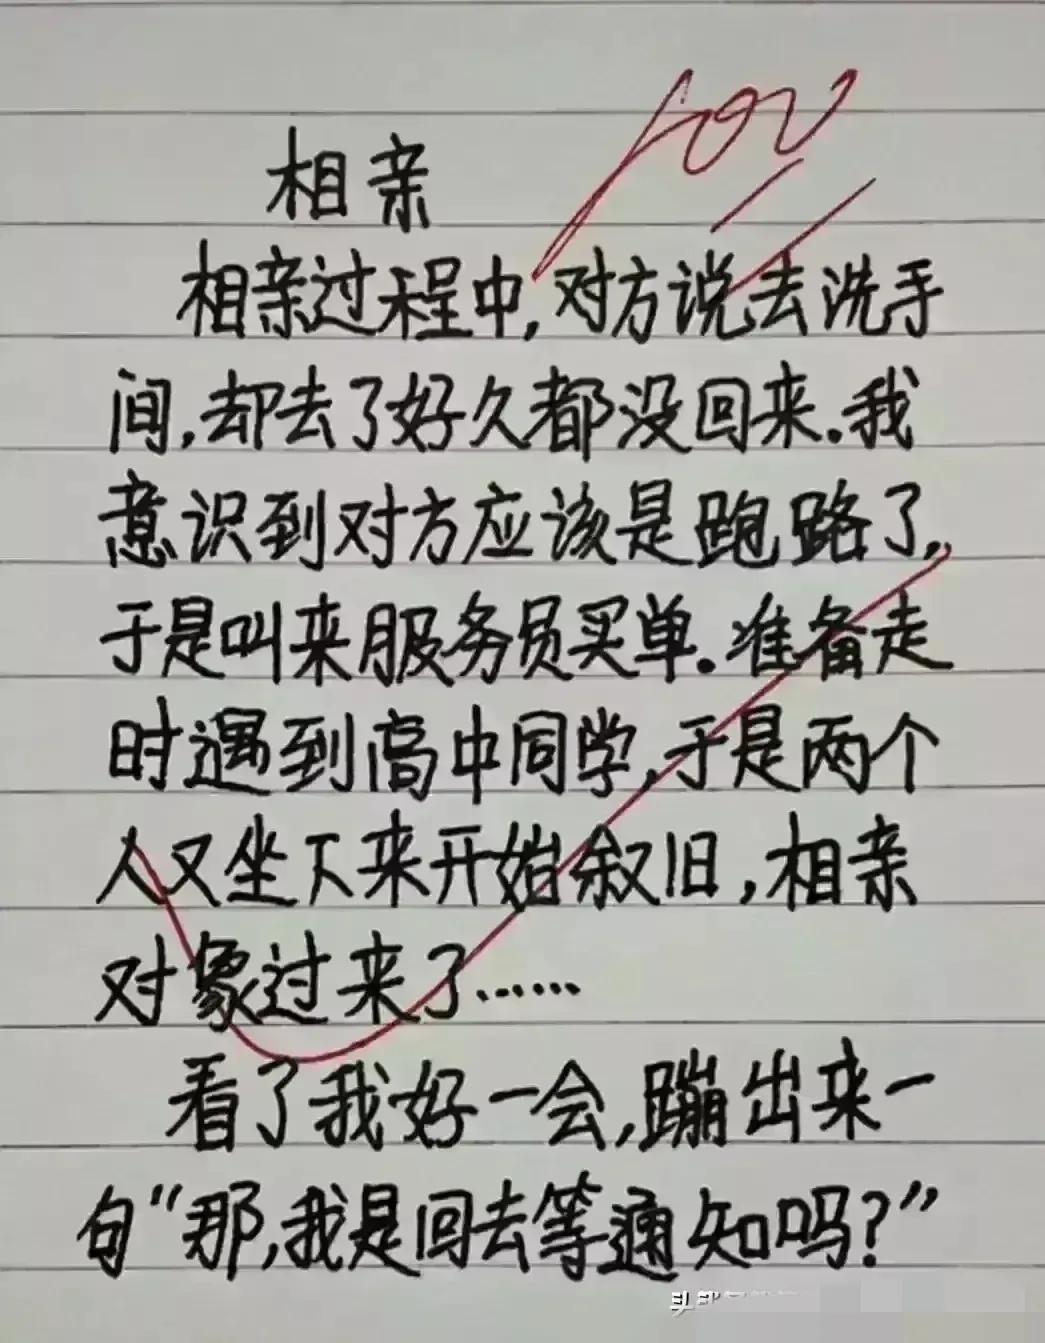 100
相亲
相亲过程中,对方说去洗手
间,却去了好久都没回来.我
意识到对方应该是跑路了,
于是叫来服务员买单.准备走
时遇到高中同学,于是两个
人又坐下来开始叙旧,相亲
对象过来了……
看了我好一会,蹦出来一
句“那,我是回去等通知吗?”